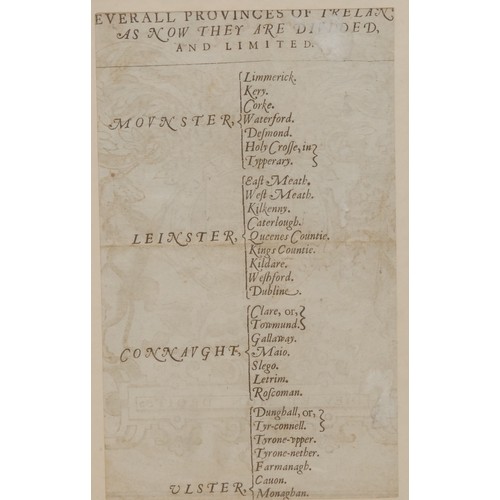 EVERALL PROVINCES OF IRELAN,
AS NOW THEY ARE DIVIDED,
AND LIMITED.
MOVNSTER,
Limmerick.
Kery.
Corke.
Waterford.
Desmond.
Holy Crosse, in
Typperary.
LEINSTER,
East Meath.
West Meath.
Kilkenny.
Caterlough.
Queenes Countie.
Kings Countie.
Kildare.
Weshford.
Dubline.
CONNAVGHT,
Clare, or,
Towmund.
Gallaway.
Maio.
Slego.
Letrim.
Roscoman.
VLSTER,
Dunghall, or,
Tyr-connell.
Tyrone-vpper.
Tyrone-nether.
Farmanagh.
Cauon.
Monaghan.